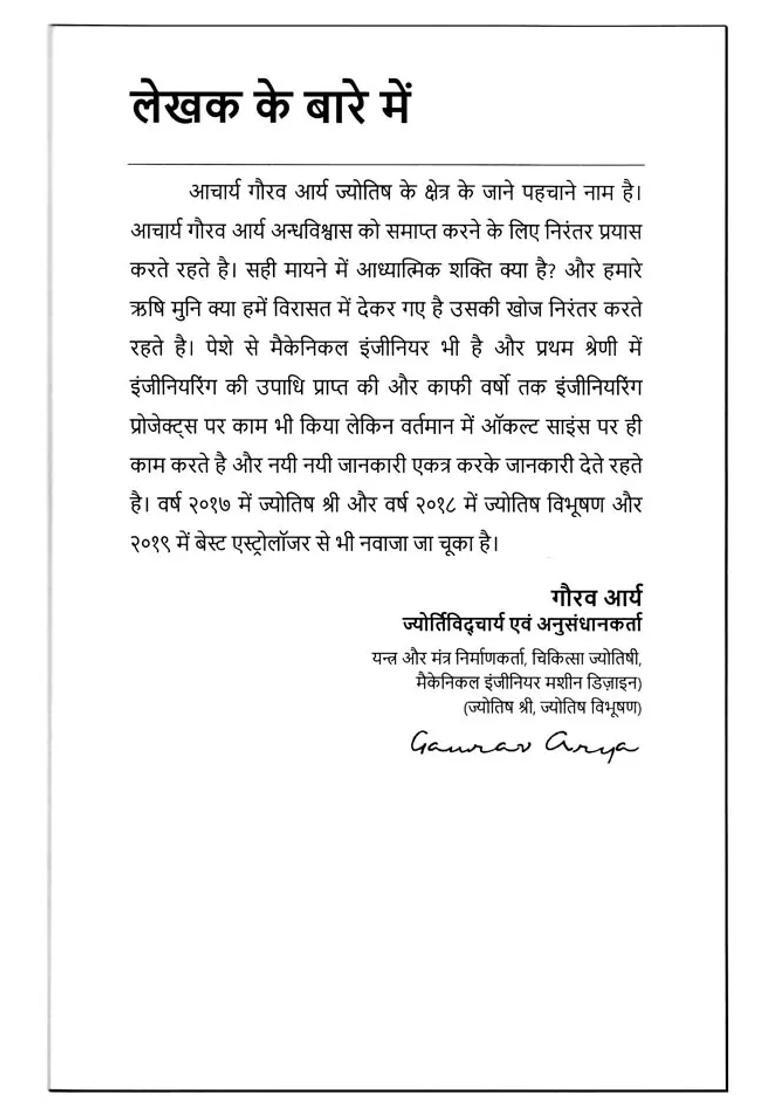 लेखक के बारे में
आचार्य गौरव आर्य ज्योतिष के क्षेत्र के जाने पहचाने नाम है।
आचार्य गौरव आर्य अन्धविश्वास को समाप्त करने के लिए निरंतर प्रयास
करते रहते है। सही मायने में आध्यात्मिक शक्ति क्या है? और हमारे
ऋषि मुनि क्या हमें विरासत में देकर गए है उसकी खोज निरंतर करते
रहते है। पेशे से मैकेनिकल इंजीनियर भी है और प्रथम श्रेणी में
इंजीनियरिंग की उपाधि प्राप्त की और काफी वर्षो तक इंजीनियरिंग
प्रोजेक्ट्स पर काम भी किया लेकिन वर्तमान में ऑकल्ट साइंस पर ही
काम करते है और नयी नयी जानकारी एकत्र करके जानकारी देते रहते
है। वर्ष २०१७ में ज्योतिष श्री और वर्ष २०१८ में ज्योतिष विभूषण और
२०१९ में बेस्ट एस्ट्रोलॉजर से भी नवाजा जा चूका है।
गौरव आर्य
ज्योर्तिविद्चार्य एवं अनुसंधानकर्ता
यन्त्र और मंत्र निर्माणकर्ता, चिकित्सा ज्योतिषी,
मैकेनिकल इंजीनियर मशीन डिज़ाइन)
(ज्योतिष श्री, ज्योतिष विभूषण)
Gaurav Arya